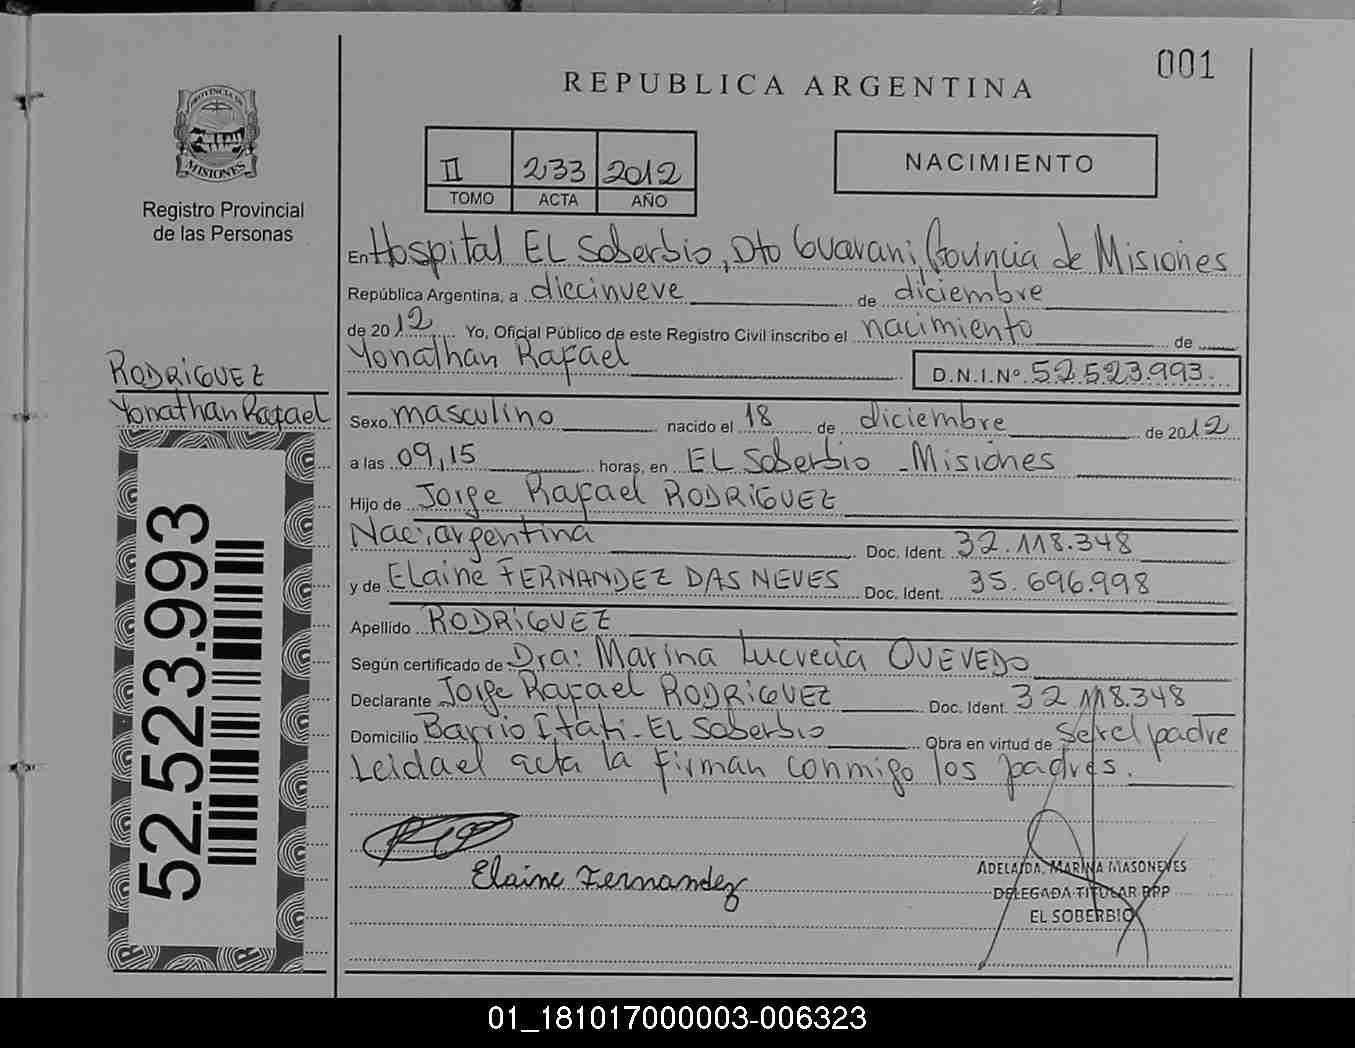 001
REPUBLICA ARGENTINA
PROVINCIA DE
MISIONES
Registro Provincial
de las Personas
II 233 2012
TOMO ACTA AÑO
NACIMIENTO
En Hospital EL Soberbio, Dto Guarani, Provincia de Misiones
República Argentina, a diecinueve de diciembre
de 2012 Yo, Oficial Público de este Registro Civil inscribo el nacimiento de
Yonathan Rafael D.N.I.Nº 52.523.993.
RODRIGUEZ
Yonathan Rafael
Sexo masculino nacido el 18 de diciembre de 2012
a las 09,15 horas, en EL Soberbio - Misiones
Hijo de Jorge Rafael RODRIGUEZ
Nac: argentina Doc. Ident. 32.118.348
y de Elaine FERNANDEZ DAS NEVES Doc. Ident. 35.696.998
Apellido RODRIGUEZ
Según certificado de Dra: Marina Lucrecia QUEVEDO
Declarante Jorge Rafael RODRIGUEZ Doc. Ident. 32.118.348
Domicilio Barrio Itati - EL Soberbio Obra en virtud de ser el padre
Leida el acta la firman conmigo los padres.
52.523.993
Elaine Fernandez
ADELAIDA MARINA MASONEVES
DELEGADA TITULAR RPP
EL SOBERBIO
01_181017000003-006323